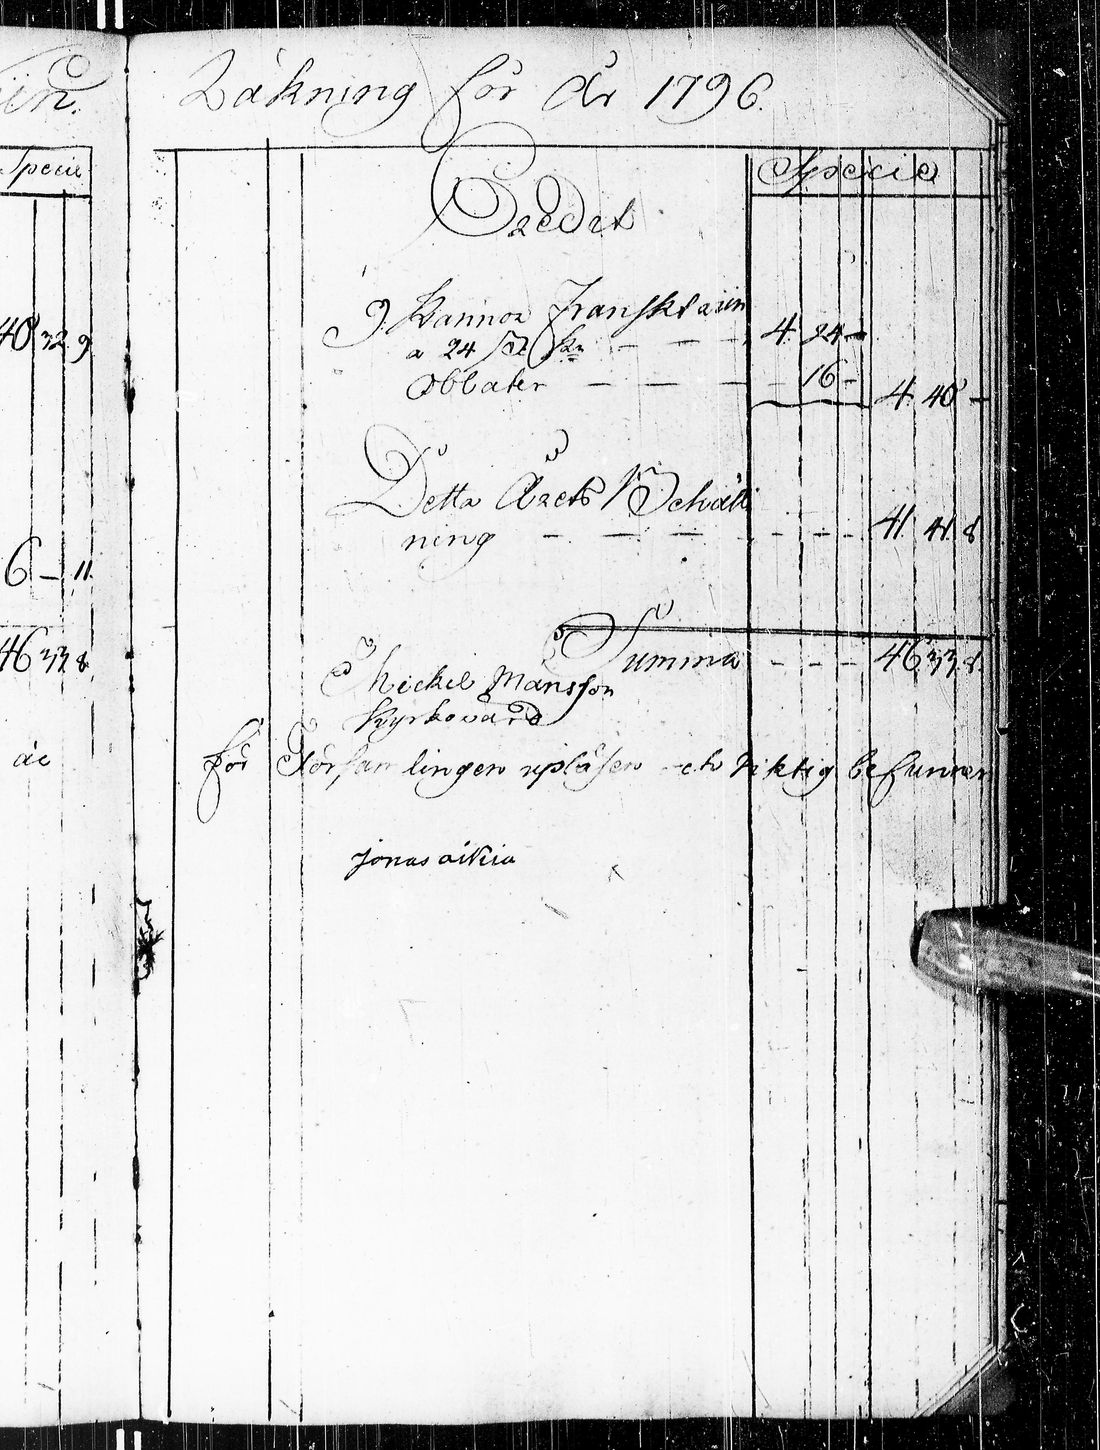 Räkning för År 1796.
Specie
Specie
Credit
9. Kannor Franskt wiin
a 24 ß Kn — — — 4 24 —
Oblater — — — — 16 — 4 40 —
40 32 9
Detta Årets Behåll
ning — — — — — — 41 41 8
6 — 11
Summa — — — 46 33 8
46 33 8
Mickel Månsson
Kyrkovärd
för Församlingen upläsen och riktig befunnen
Jonas